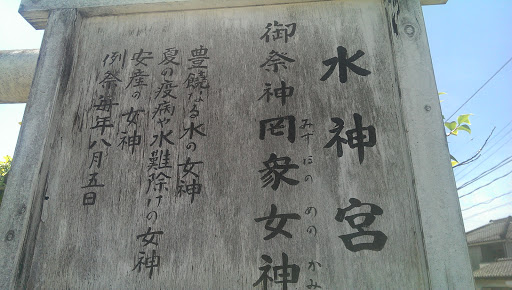 水神宮
御祭神罔象女神
みずはのめのかみ
豊饒なる水の女神
夏の疫病や水難除けの女神
安産の女神
例祭毎年八月五日